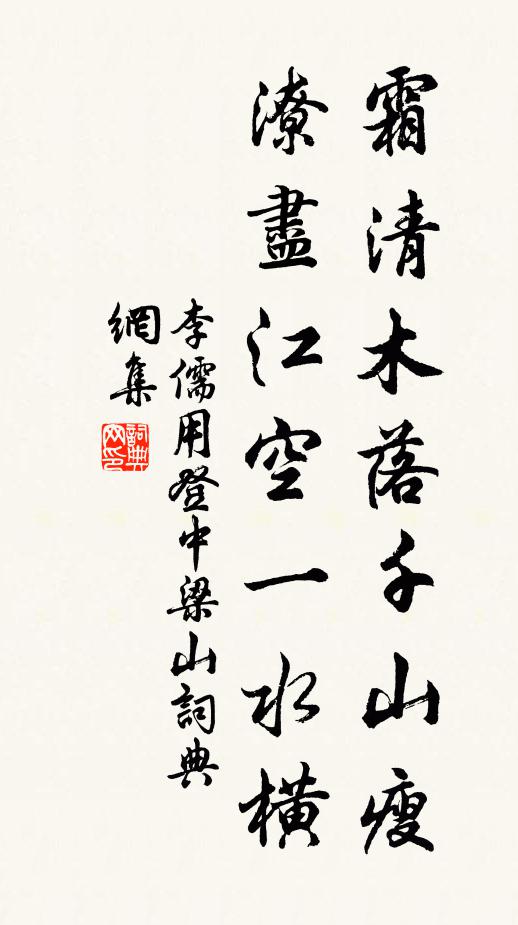 霜清木落千山瘦
潦盡江空一水橫
李儒用登中梁山詞典
網集
詞典
网印